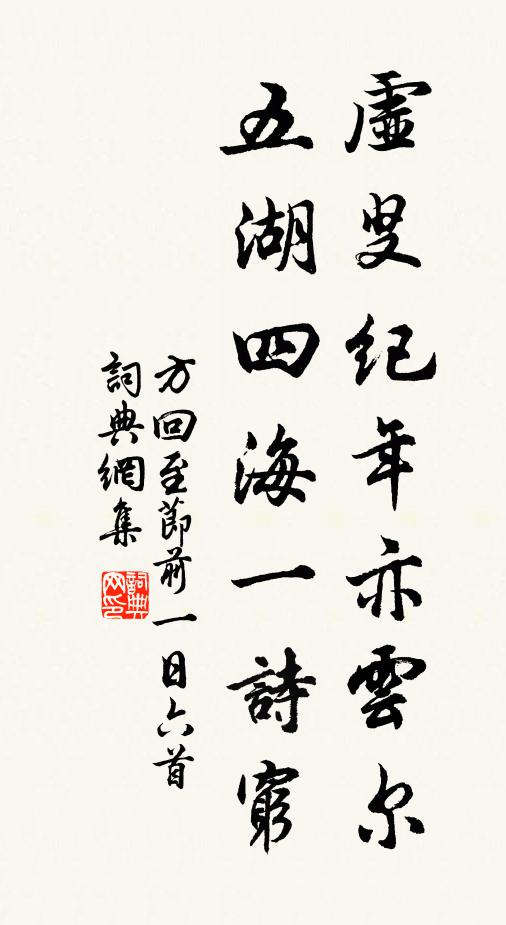 虛叟紀年亦雲尔
五湖四海一詩窮
方回至節前一日六首
詞典網集
詞典网印